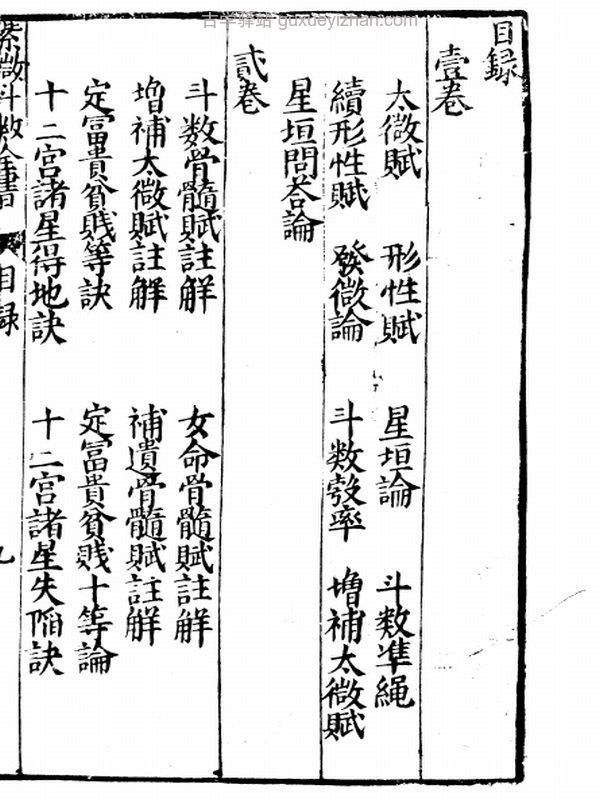 古学驿站 guxueyizhan.com
目録
壹卷
太微賦 形性賦 星垣論 斗数準繩
續形性賦 發微論 斗数彀率 增補太微賦
星垣問答論
貳卷
斗数骨髓賦註解 女命骨髓賦註解
增補太微賦註解 補遺骨髓賦註解
定富貴貧賤等訣 定富貴貧賤十等論
十二宮諸星得地訣 十二宮諸星失陷訣
紫微斗数全書 目録 九